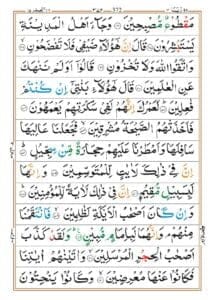 ٢٦٦
مَقْطُوْعٌ مُّصْبِحِيْنَ ۝ وَجَآءَ اَهْلُ الْمَدِيْنَةِ
يَسْتَبْشِرُوْنَ ۝ قَالَ اِنَّ هٰٓؤُلَآءِ ضَيْفِيْ فَلَا تَفْضَحُوْنِ ۝
وَاتَّقُوا اللّٰهَ وَلَا تُخْزُوْنِ ۝ قَالُوْٓا اَوَلَمْ نَنْهَكَ
عَنِ الْعٰلَمِيْنَ ۝ قَالَ هٰٓؤُلَآءِ بَنٰتِيْٓ اِنْ كُنْتُمْ
فٰعِلِيْنَ ۝ لَعَمْرُكَ اِنَّهُمْ لَفِيْ سَكْرَتِهِمْ يَعْمَهُوْنَ ۝
فَاَخَذَتْهُمُ الصَّيْحَةُ مُشْرِقِيْنَ ۝ فَجَعَلْنَا عَالِيَهَا
سَافِلَهَا وَاَمْطَرْنَا عَلَيْهِمْ حِجَارَةً مِّنْ سِجِّيْلٍ ۝
اِنَّ فِيْ ذٰلِكَ لَاٰيٰتٍ لِّلْمُتَوَسِّمِيْنَ ۝ وَاِنَّهَا
لَبِسَبِيْلٍ مُّقِيْمٍ ۝ اِنَّ فِيْ ذٰلِكَ لَاٰيَةً لِّلْمُؤْمِنِيْنَ ۝
وَاِنْ كَانَ اَصْحٰبُ الْاَيْكَةِ لَظٰلِمِيْنَ ۝ فَانْتَقَمْنَا
مِنْهُمْ وَاِنَّهُمَا لَبِاِمَامٍ مُّبِيْنٍ ۝ وَلَقَدْ كَذَّبَ
اَصْحٰبُ الْحِجْرِ الْمُرْسَلِيْنَ ۝ وَاٰتَيْنٰهُمْ اٰيٰتِنَا
فَكَانُوْا عَنْهَا مُعْرِضِيْنَ ۝ وَكَانُوْا يَنْحِتُوْنَ